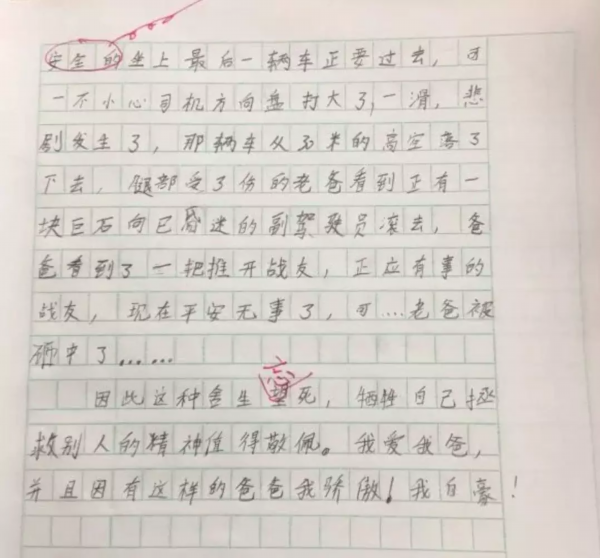 安全的坐上最后一辆车正要过去，可
一不小心司机方向盘打大了，一滑，悲
剧发生了，那辆车从30米的高空落了
下去，腿部受了份的老爸看到正有一
块巨石向已昏迷的副驾驶员滚去，爸
爸看到了一把推开战友，正应有事的
战友，现在平安无事了，可…老爸被
砸中了……
忘
因此这种舍生望死，牺牲自己拯
救别人的精神值得敬佩。我爱我爸，
并且因有这样的爸爸我骄傲！我自豪！